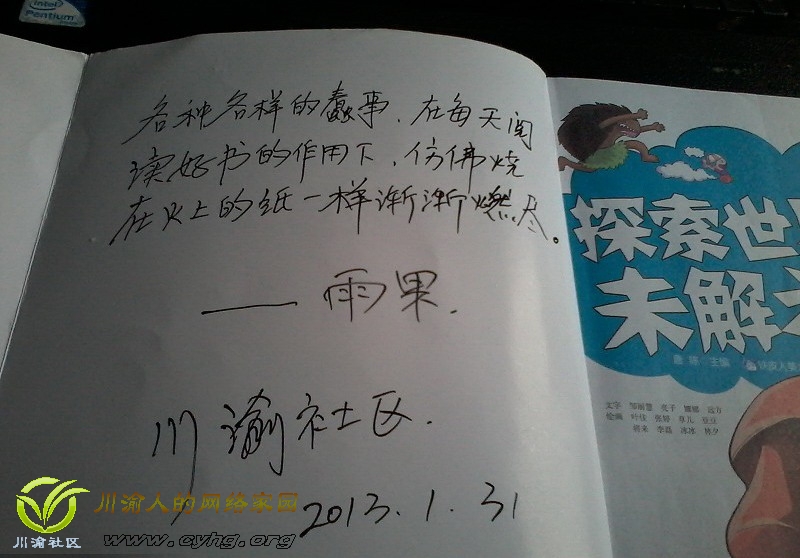 intel
Pentium
各种各样的蠢事，在每天阅
读好书的作用下，仿佛烧
在火上的纸一样渐渐燃尽。
—— 雨果.
川渝社区.
2013.1.31
探索世
未解
主编
文字
绘画
川渝人的网络家园
川渝社区
www.cyhg.org